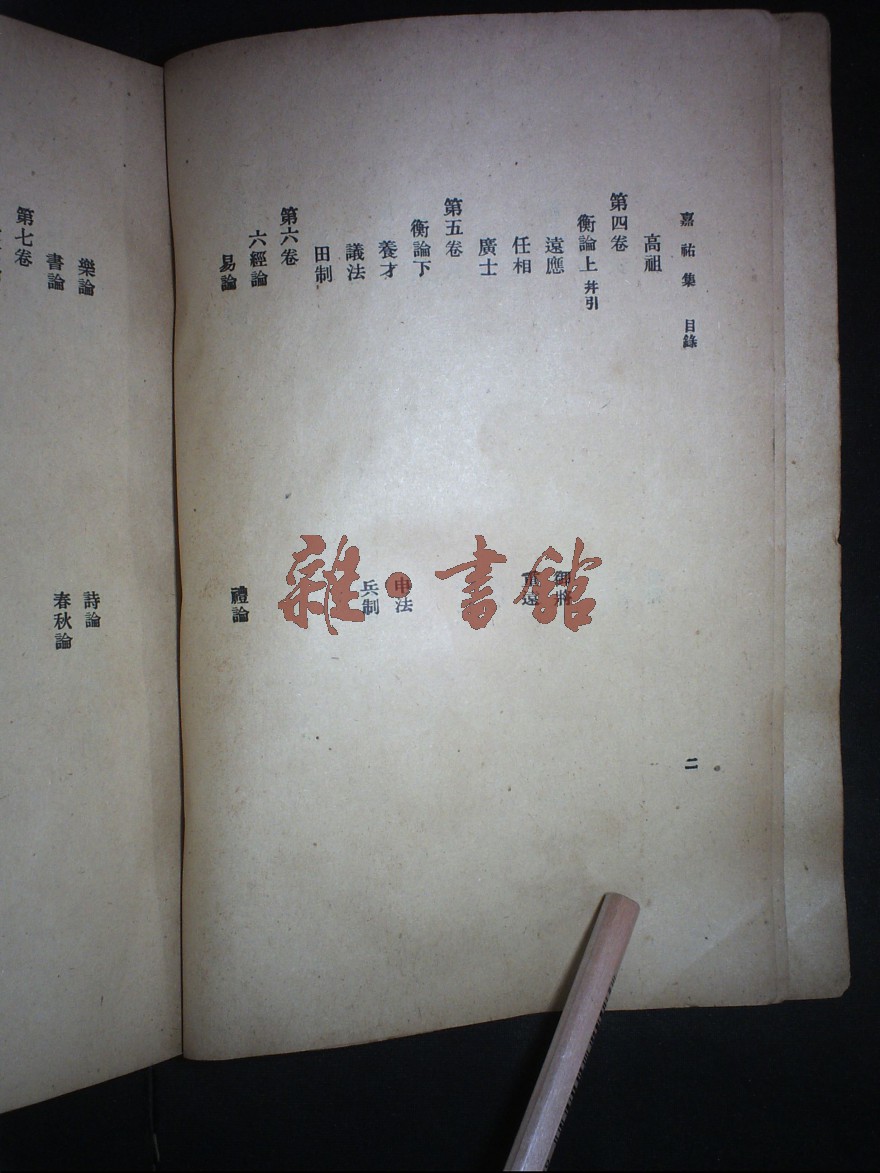 嘉祐集 目錄 二
高祖
第四卷
衡論上 并引
遠應 御將
任相 重遠
廣士
第五卷
衡論下
養才 申法
議法 兵制
田制
第六卷
六經論
易論 禮論
樂論 詩論
書論 春秋論
第七卷
雜·書館